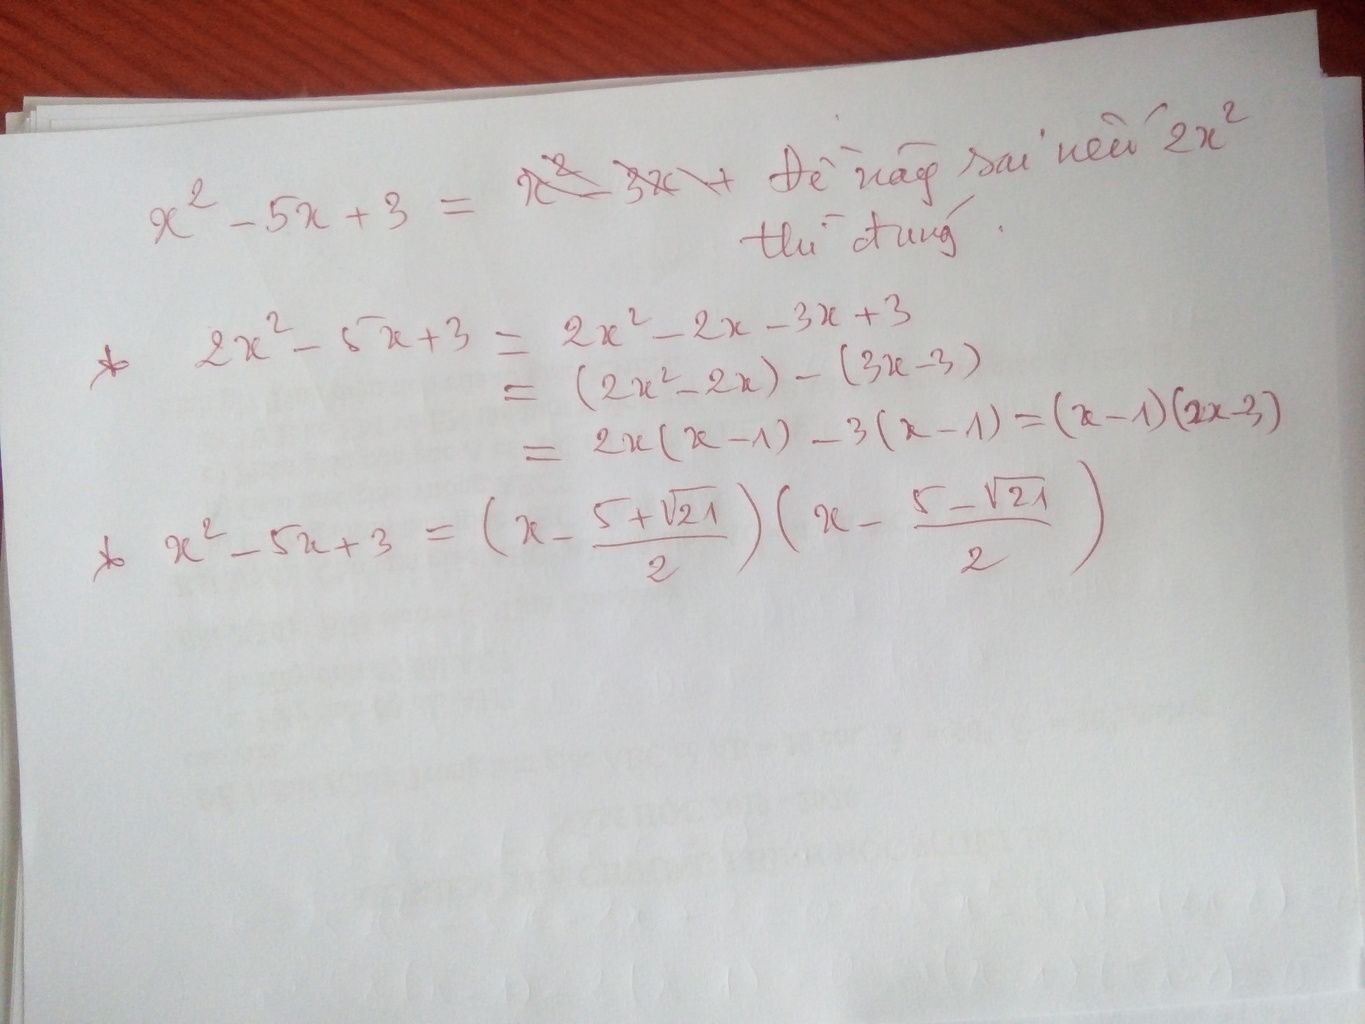 x² - 5x + 3 = x² - 3x + Đề này sai nếu 2x²
thì đúng.
* 2x² - 5x + 3 = 2x² - 2x - 3x + 3
= (2x² - 2x) - (3x - 3)
= 2x(x - 1) - 3(x - 1) = (x - 1)(2x - 3)
* x² - 5x + 3 = (x - \frac{5 + √21}{2})(x - \frac{5 - √21}{2})